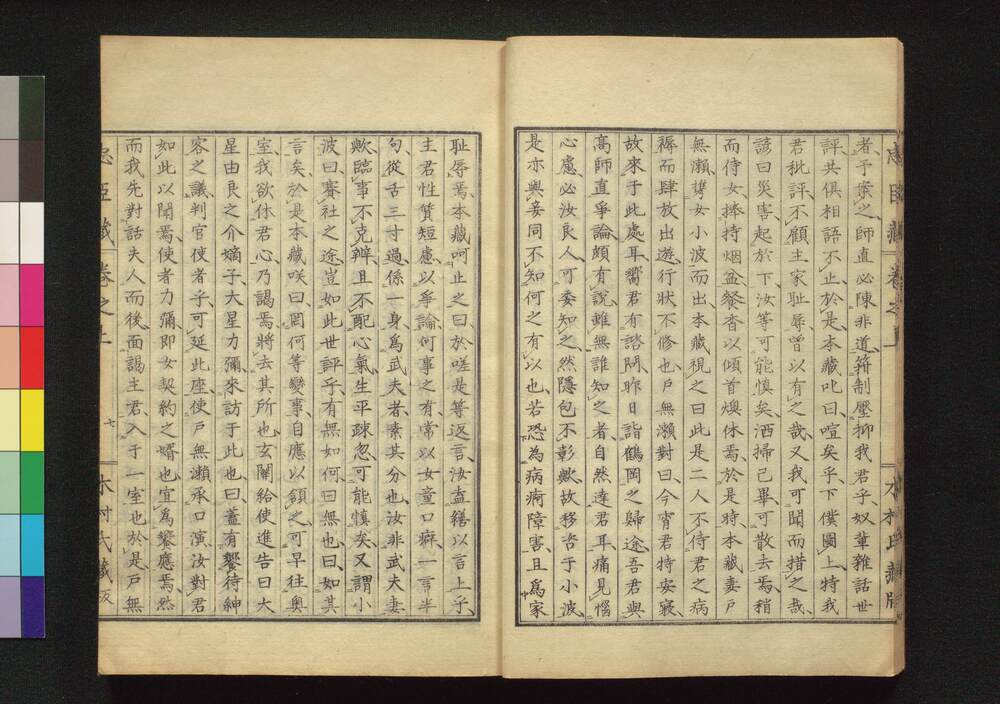 者予桒之師直必陳非道箝制壓抑我君子奴輩雜話世
評共俱相語不止於是本藏叱曰喧矣乎下僕圍上特我
君批評不顧主家耻辱曾以有之哉又我可聞而措之哉
諺曰災害起於下汝等可能慎矣洒掃己畢可散去焉稍
而侍女捧持烟盆餐杳以傾首燠休焉於是時本藏妻戸
無瀨携女小波而出本藏視之曰此是二人不侍君之病
褥而肆放出遊行狀不修也戸無瀨對曰今宵君特安寢
故來于此處耳嚮君有諮問昨日詣鶴岡之歸途吾君與
高師直爭論頗有說雖無誰知之者自然達君耳痛見惱
心慮必汝良人可委知之然隱包不彰歟故移咨于小波
是亦與妾同不知何之有以也若恐為病痾障害且爲家
耻辱焉本藏呵止之曰於嗟是等返言汝盍繕以言上乎
主君性質短慮以爭論何事之有常以女童口癖一言半
句從舌三寸過係一身爲武夫者素其分也汝非武夫妻
歟臨事不克辨且不配心氣生平踈忽可能慎矣又謂小
波曰賽社之途豈如此世評乎有無如何曰無也曰如其
言矣於是本藏咲曰罔何等變事自應以頷之可早往奥
室我欲休君心乃謁焉將去其所也玄關給使進告曰大
星由良之介嫡子大星力彌來訪于此也曰蓋有饗待紳
容之議判官使者予可延此座使戸無瀨承口演汝對君
如此以聞焉使者力彌即女契約之婿也宜爲饗應焉然
而我先對話夫人而後面謁主君入于一室也於是戸無
忠臣藏 卷之上 七 木村氏藏版